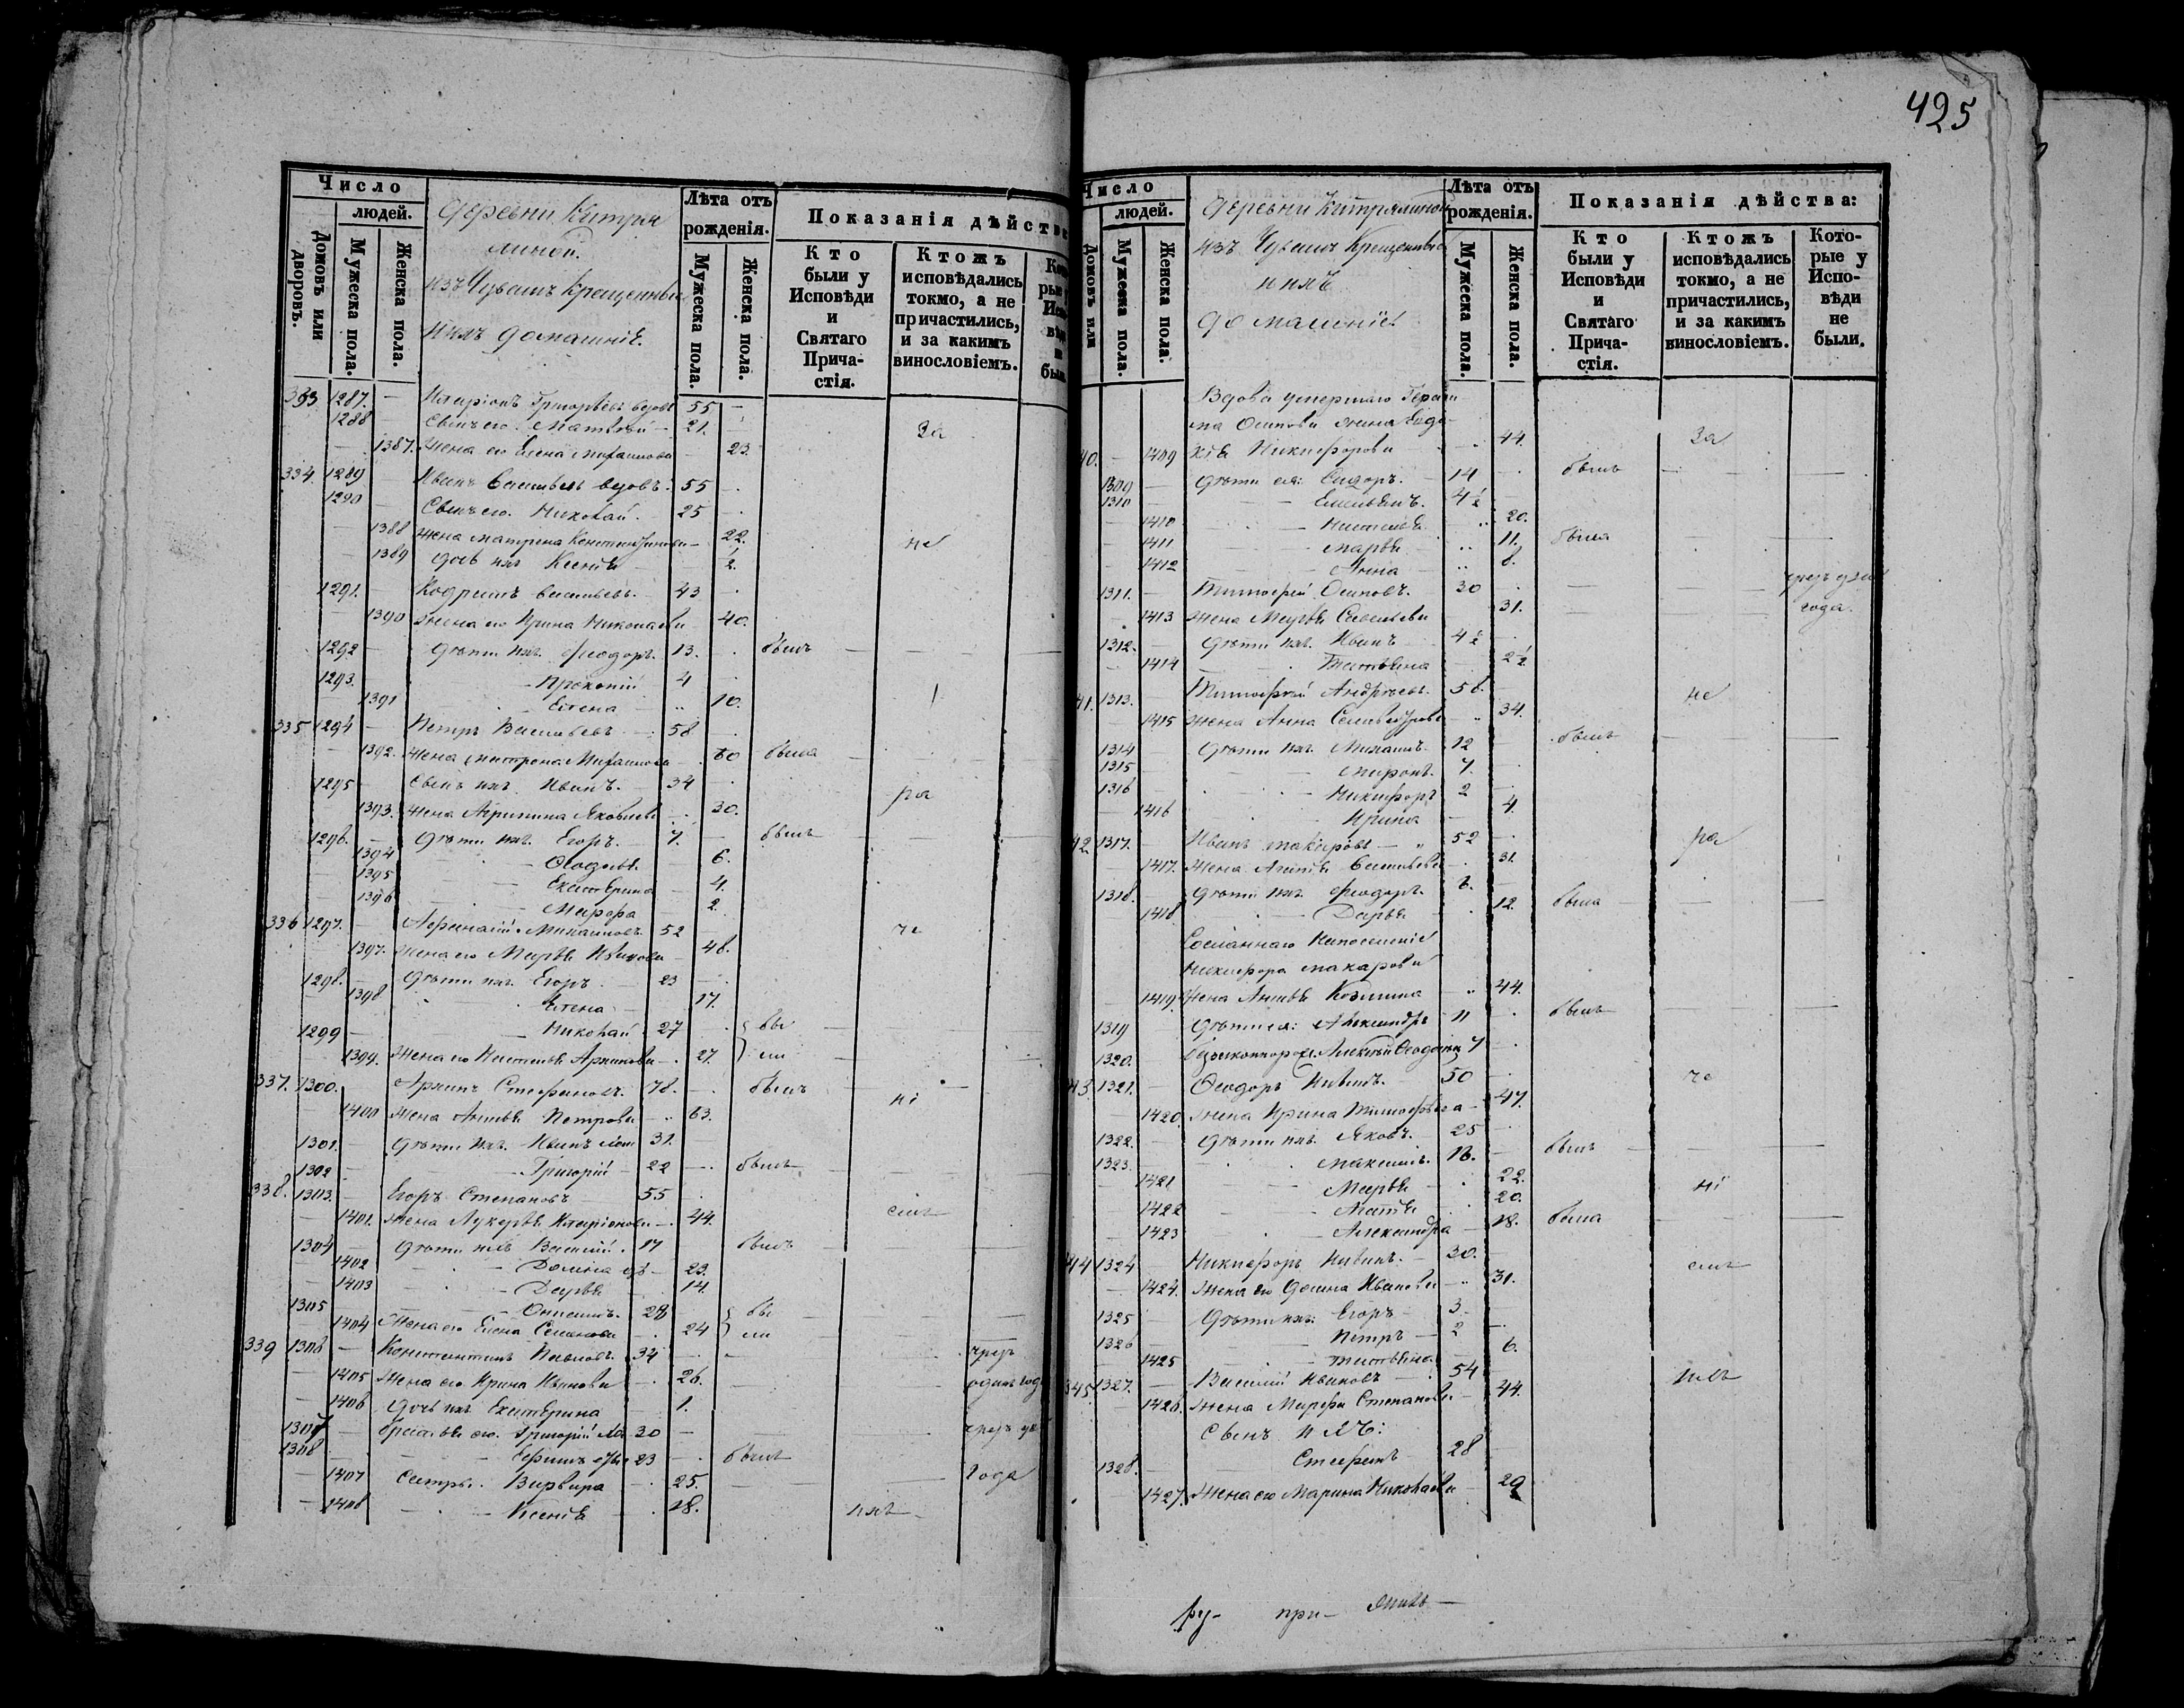 425
Число
людей.
Домовъ или дворовъ.
Мужеска пола.
Женска пола.
деревни Китря
линой.
изъ Чувашъ Крещенные
и ихъ домашніе.
Лѣта отъ
рожденія.
Мужеска пола.
Женска пола.
Показанія дѣйства
Кто были у Исповѣди и Святаго Прича- стія.
Ктожъ исповѣдались токмо, а не причастились, и за какимъ винословіемъ.
333 1287. — Иларіонъ Григорьевъ вдовъ 55 —
1288 Сынъ его Матвѣй — 21. За
1387. Жена его Елена Михаилова — 23.
334. 1289 — Иванъ Васильевъ вдовъ. 55
1290 Сынъ его Николай. 25
1388 Жена Матрена Константинова — 22. не
1389 дочь ихъ Ксенія ½.
1291. Кодратъ Васильевъ. 43
1390 Жена его Ирина Николаева 40.
1292 дѣти ихъ Ѳеодоръ. 13. былъ
1293. — Прокопій 4
1391 Елена „ 10.
335 1294 — Петръ Васильевъ — 58
1392. Жена Матрона Михаилова 60 была
1295 — Сынъ ихъ Иванъ. 34 ра
1393. Жена Агрипина Яковлева 30.
1296. — дѣти ихъ Егоръ. 7. былъ
1394 Ѳеодосья 6.
1395 — Екатерина 4.
1396 — Марфа 2
336 1297. — Афанасій Михаиловъ 52 че
1397. Жена его Марѳа Иванова 48.
1298. — дѣти ихъ Егоръ. 23
1398 Елена 17.
1299 — Николай 27 бы
1399. Жена его Наталья Архипова 27. ли
337. 1300. Архипъ Стефановъ. 78. былъ
1400 Жена Анна Петрова 63. ні
1301. дѣти ихъ Иванъ 31.
1302 Григорій 22 былъ
338. 1303. — Егоръ Степановъ 55
1401. Жена Лукерья Иларіонова 44. емъ
1304 дѣти ихъ Василій 17 былъ
1402 23.
1403 — Дарья 14.
1305 — Онисимъ. 28 бы
1404 Жена его Елена Семенова 24 ли
339 1306 — Константинъ Павловъ. 34 чрезъ
1405 Жена его Ирина Иванова 26. одинъ годъ
1406 дочь ихъ Екатерина 1.
1307 — Братья его Григорій 30 чрезъ
1308 — Ефимъ 23 былъ
1407 Сестры Варвара 25. года
1408 — Ксенія 18. ихъ
Число
людей.
Домовъ или
Мужеска пола.
Женска пола.
деревни Китрялиной
изъ Чувашъ Крещенные
и ихъ
домашніе
Лѣта отъ
рожденія.
Мужеска пола.
Женска пола.
Показанія дѣйства:
Кто были у Исповѣди и Святаго Прича- стія.
Ктожъ исповѣдались токмо, а не причастились, и за какимъ винословіемъ.
Кото- рые у Испо- вѣди не были.
Вдова умершаго Гераси
ма Осипова жена Евдо
40. — 1409 кія Никифорова 44. За
1309 — дѣти ея: Сидоръ. 14 былъ
1310 — Емельянъ. 4½
1410 — Наталья 20.
1411 — Марья 11. была
1412 — Анна 8.
1311. Тимофей Осиповъ. 30 чрезъ два
1413 Жена Марья Савельева 31. года.
1312. — дѣти ихъ Иванъ 4½
1414 Татьяна 2½
41. 1313. — Тимофей Андреевъ. 58. не
1415 Жена Анна 34.
1314 дѣти ихъ Михаилъ. 12 былъ
1315 — Миронъ. 7.
1316 Никифоръ 2
1416 Ирина 4.
42. 1317. — Иванъ Макаровъ — 52 ра
1417. Жена Васильева 31.
1318. дѣти ихъ Ѳеодоръ. 6.
1418 — Дарья 12. была
Сосланнаго Напоселеніе
Никифора Макарова
1419. Жена Анна Козмина 44.
1319 дѣти ея: Александръ 11 былъ
1320. Алексѣй 7
43. 1321. — Ѳеодоръ 50 че
1420. Жена Ирина Тимофеева 47.
1322. дѣти ихъ Яковъ. 25
1323. Максимъ. 18. былъ
1421 — Марья 22. ні
1422 20.
1423 Александра 18. была
44 1324 — Никифоръ 30. емъ
1424. Жена его Иванова 31.
1325 дѣти ихъ: Егоръ 3.
1326 Петръ 2
1425 — Татьяна 6.
345. 1327. — Василій Ивановъ 54 ихъ
1426. Жена Марфа Степанова 44.
Сынъ ихъ:
1328. — Стефанъ 28
1427. Жена его Марина Николаева 29
ру- при- ложилъ —